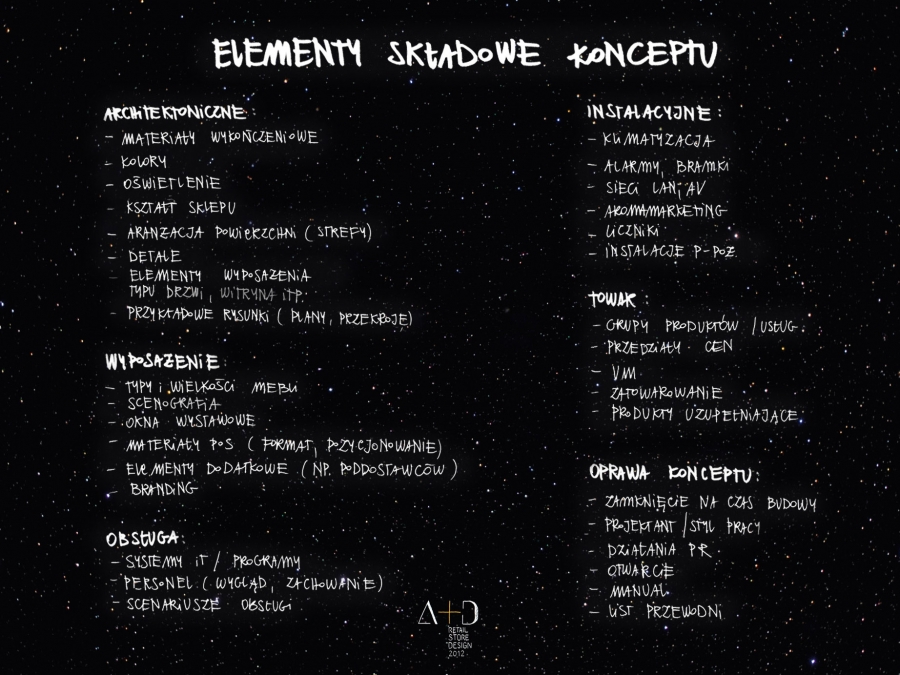 ELEMENTY SKŁADOWE KONCEPTU
ARCHITEKTONICZNE:
- MATERIAŁY WYKOŃCZENIOWE
- KOLORY
- OŚWIETLENIE
- KSZTAŁT SKLEPU
- ARANŻACJA POWIERZCHNI (STREFY)
- DETALE
- ELEMENTY WYPOSAŻENIA
TYPU DRZWI, WITRYNA ITP.
- PRZYKŁADOWE RYSUNKI (PLANY, PRZEKROJE)
WYPOSAŻENIE
- TYPY I WIELKOŚCI MEBLI
- SCENOGRAFIA
- OKNA WYSTAWOWE
- MATERIAŁY POS (FORMAT, POZYCJONOWANIE)
- ELEMENTY DODATKOWE (NP. PODDOSTAWCÓW)
- BRANDING
OBSŁUGA:
- SYSTEMY IT / PROGRAMY
- PERSONEL (WYGLĄD, ZACHOWANIE)
- SCENARIUSZE OBSŁUGI
INSTALACYJNE:
- KLIMATYZACJA
- ALARMY, BRAMKI
- SIECI LAN, AV
- AROMAMARKETING
- LICZNIKI
- INSTALACJE P-POŻ
TOWAR:
- GRUPY PRODUKTÓW / USŁUG.
- PRZEDZIAŁY CEN
- VM
- ZATOWAROWANIE
- PRODUKTY UZUPEŁNIAJĄCE
OPRAWA KONCEPTU:
- ZAMKNIĘCIE NA CZAS BUDOWY
- PROJEKTANT / STYL PRACY
- DZIAŁANIA PR.
- OTWARCIE
- MANUAL
- LIST PRZEWODNI
A+D
RETAIL
STORE
DESIGN
2012